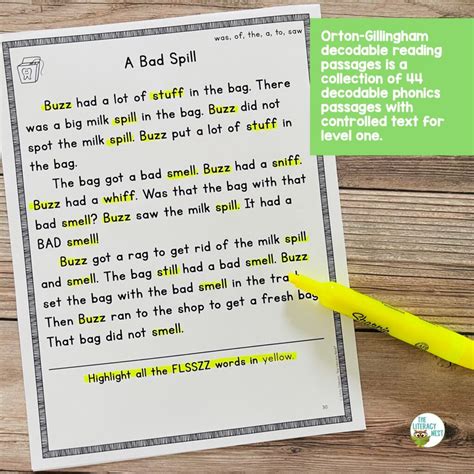 was, of, the, a, to, saw
A Bad Spill
Buzz had a lot of stuff in the bag. There
was a big milk spill in the bag. Buzz did not
spot the milk spill. Buzz put a lot of stuff in
the bag.
The bag got a bad smell. Buzz had a sniff.
Buzz had a whiff. Was that the bag with that
bad smell? Buzz saw the milk spill. It had a
BAD smell!
Buzz got a rag to get rid of the milk spill
and smell. The bag still had a bad smell. Buzz
set the bag with the bad smell in the
Then Buzz ran to the shop to get a fresh bag
That bag did not smell.
Highlight all the FLSSZZ words in yellow.
Orton-Gillingham
decodable reading
passages is a
collection of 44
decodable phonics
passages with
controlled text for
level one.
Sharpie
THE
LITERACY
NEST